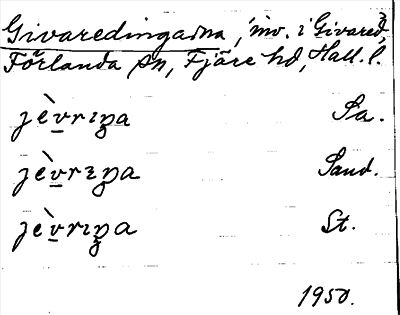 Givaredingarna, inv. i Givared,
Förlanda sn, Fjäre hd, Hall. l.
jèvrɪŋa Sa.
jèvrɪŋa Sand.
jèvrɪŋa St.
1950.